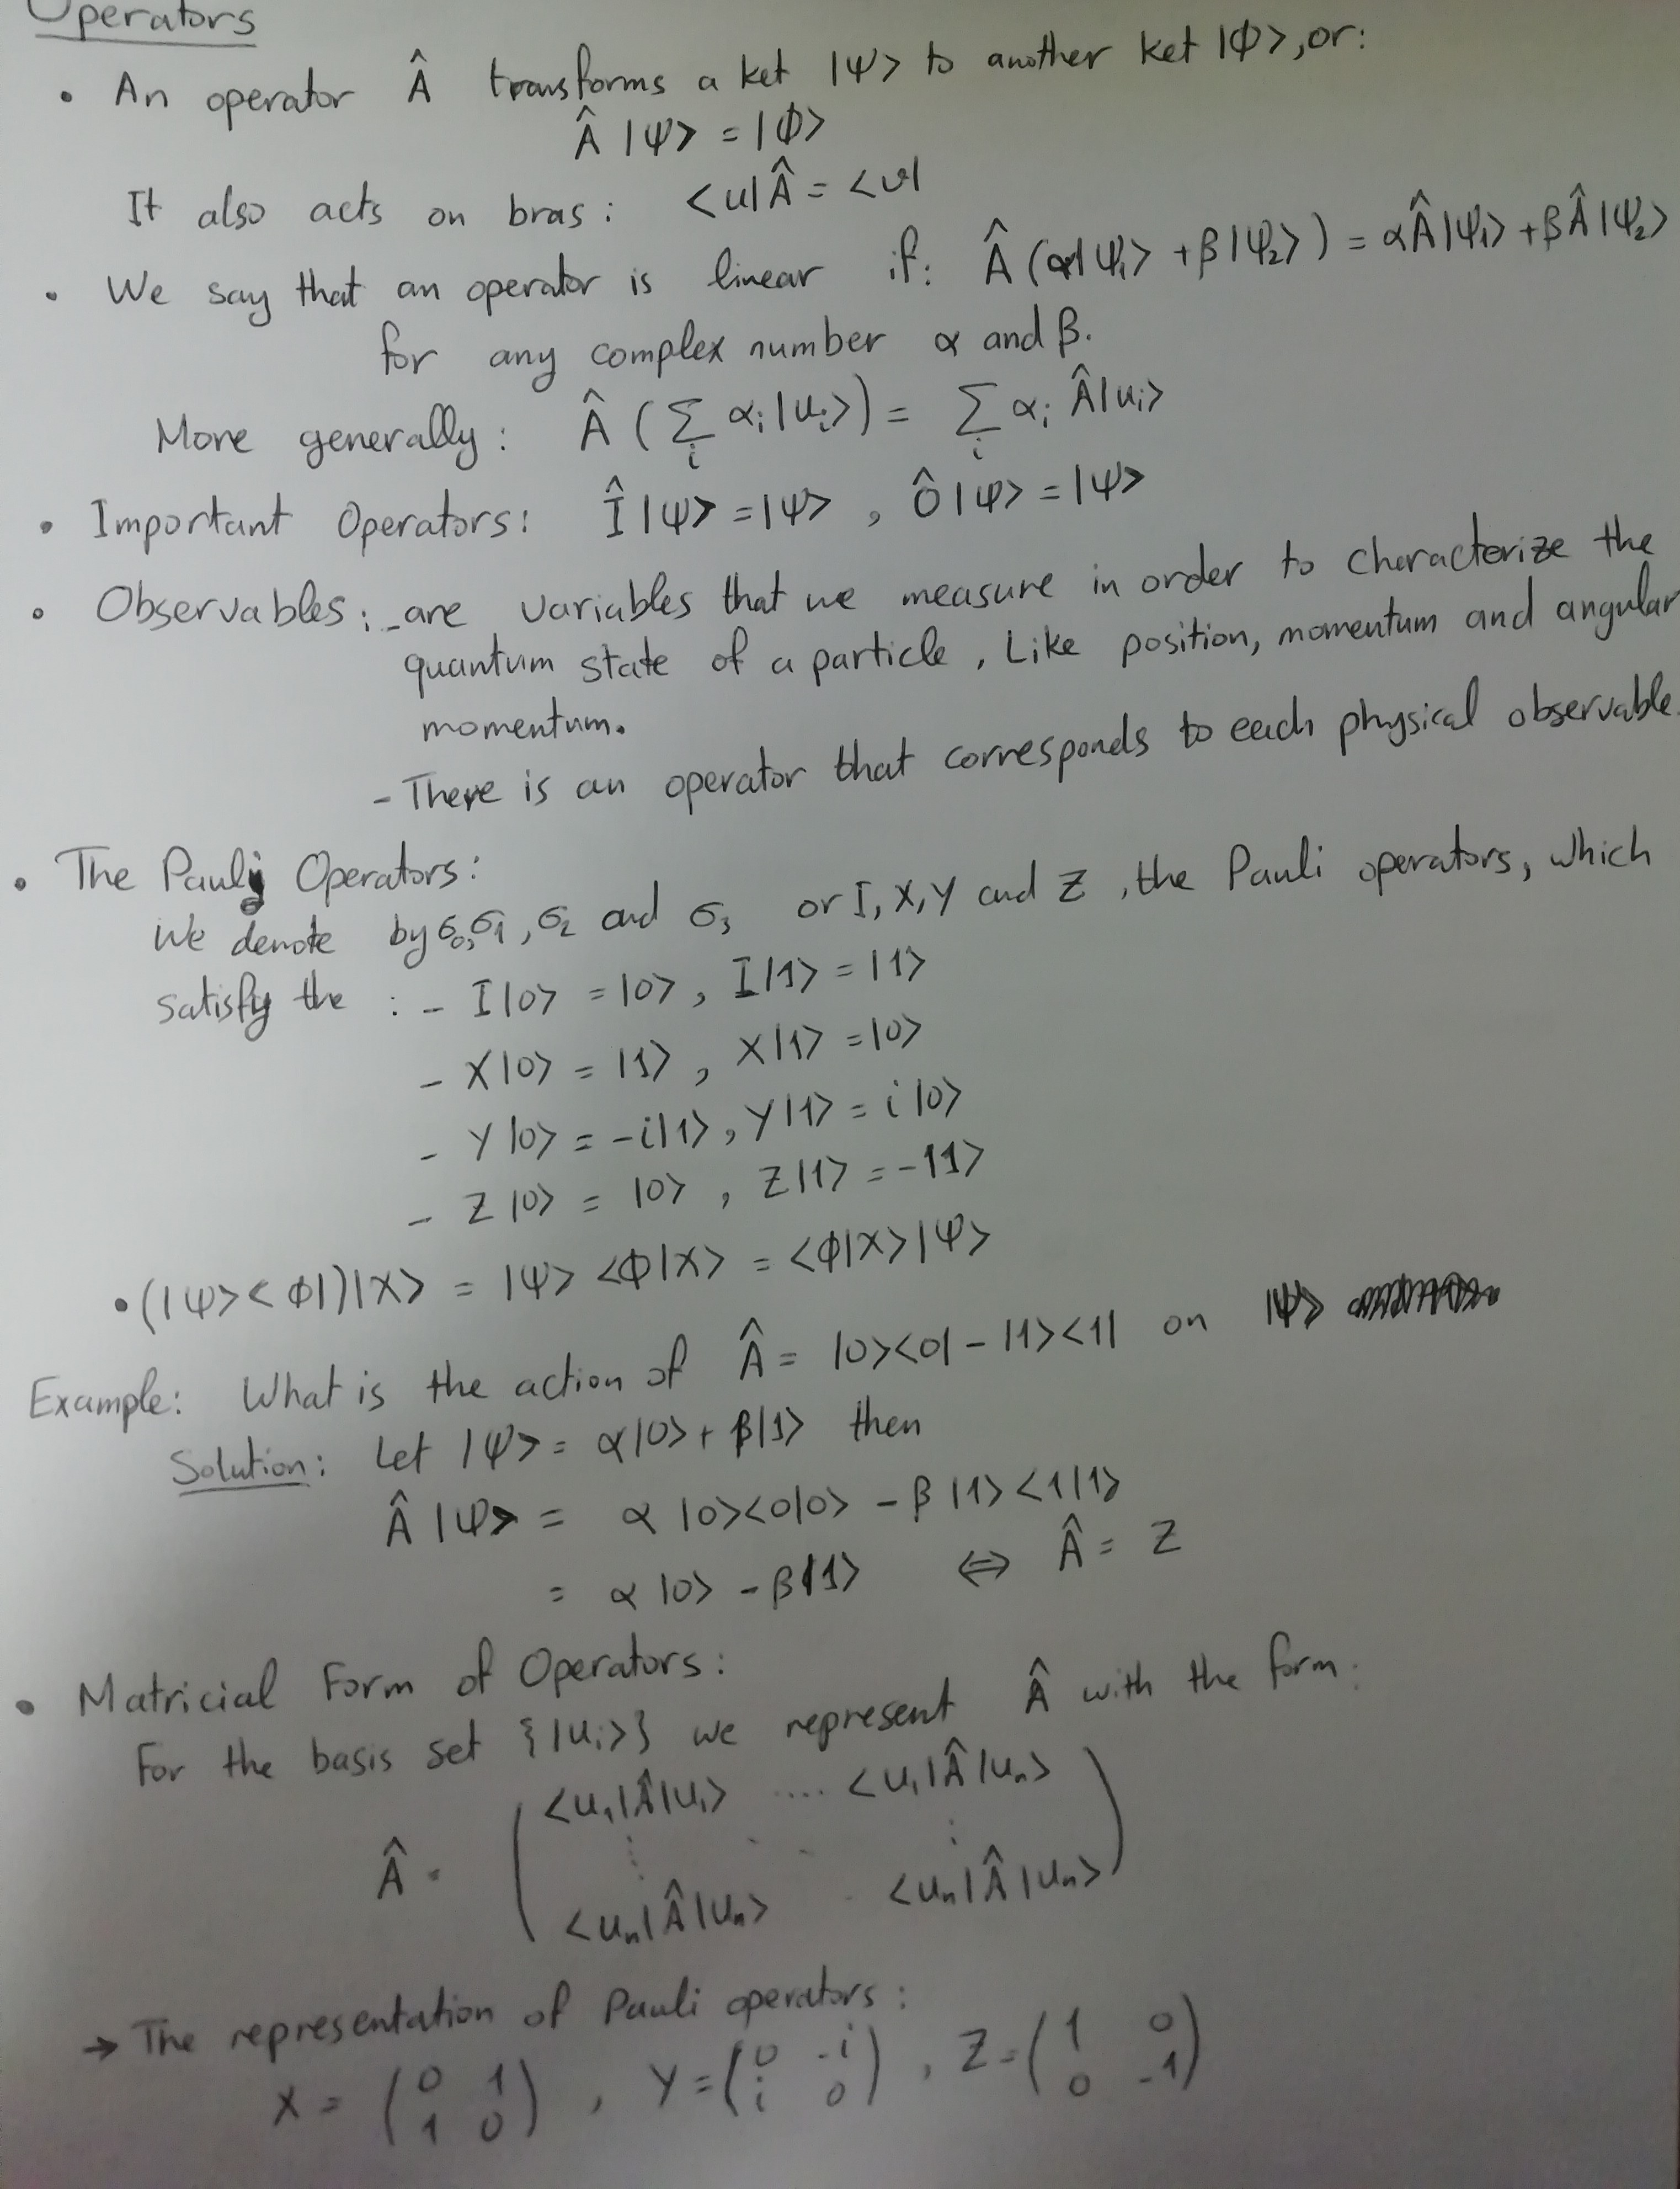 Operators
• An operator Â transforms a ket |ψ> to another ket |Φ>, or:
Â |ψ> = |Φ>
It also acts on bras: <u|Â = <v|
• We say that an operator is linear if: Â (α|ψ₁> + β|ψ₂>) = αÂ|ψ₁> + βÂ|ψ₂>
for any complex number α and β.
More generally: Â (∑ᵢ αᵢ|uᵢ>) = ∑ᵢ αᵢ Â|uᵢ>
• Important Operators: Î|ψ> = |ψ> , Ô|ψ> = |ψ>
• Observables: - are variables that we measure in order to characterize the
quantum state of a particle, Like position, momentum and angular
momentum.
- There is an operator that corresponds to each physical observable.
• The Pauli Operators:
We denote by σ₀, σ₁, σ₂ and σ₃ or I, X, Y and Z, the Pauli operators, which
satisfy the : - I|0> = |0> , I|1> = |1>
- X|0> = |1> , X|1> = |0>
- Y|0> = -i|1> , Y|1> = i|0>
- Z|0> = |0> , Z|1> = -|1>
• (|ψ><Φ|)|X> = |ψ> <Φ|X> = <Φ|X>|ψ>
Example: What is the action of Â = |0><0| - |1><1| on |ψ>
Solution: Let |ψ> = α|0> + β|1> then
Â|ψ> = α |0><0|0> - β |1><1|1>
= α |0> - β|1> ⇔ Â = Z
• Matricial Form of Operators:
For the basis set {|uᵢ>} we represent Â with the form:
<u₁|Â|u₁> .... <u₁|Â|uₙ>
Â =
<uₙ|Â|uₙ> . <uₙ|Â|uₙ>
→ The representation of Pauli operators:
X = (0 1 ; 1 0) , Y = (0 -i ; i 0) , Z = (1 0 ; 0 -1)